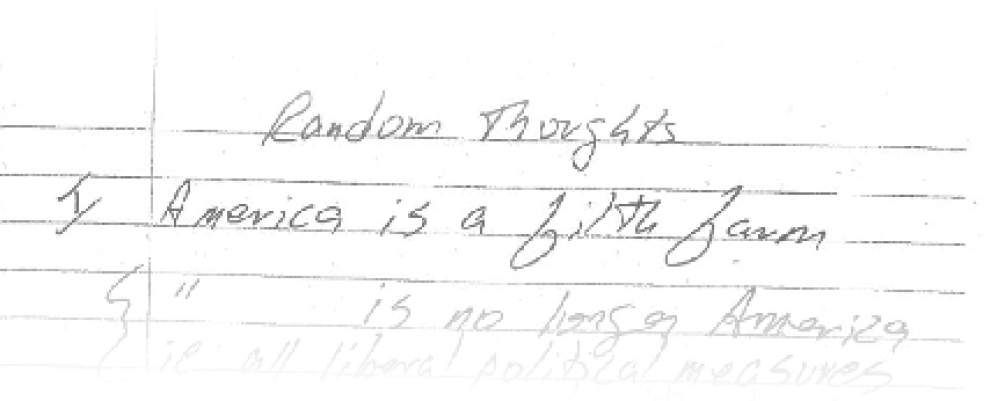 Random Thoughts
1) America is a filth farm
{ " is no longer America
{ ie: all liberal political measures